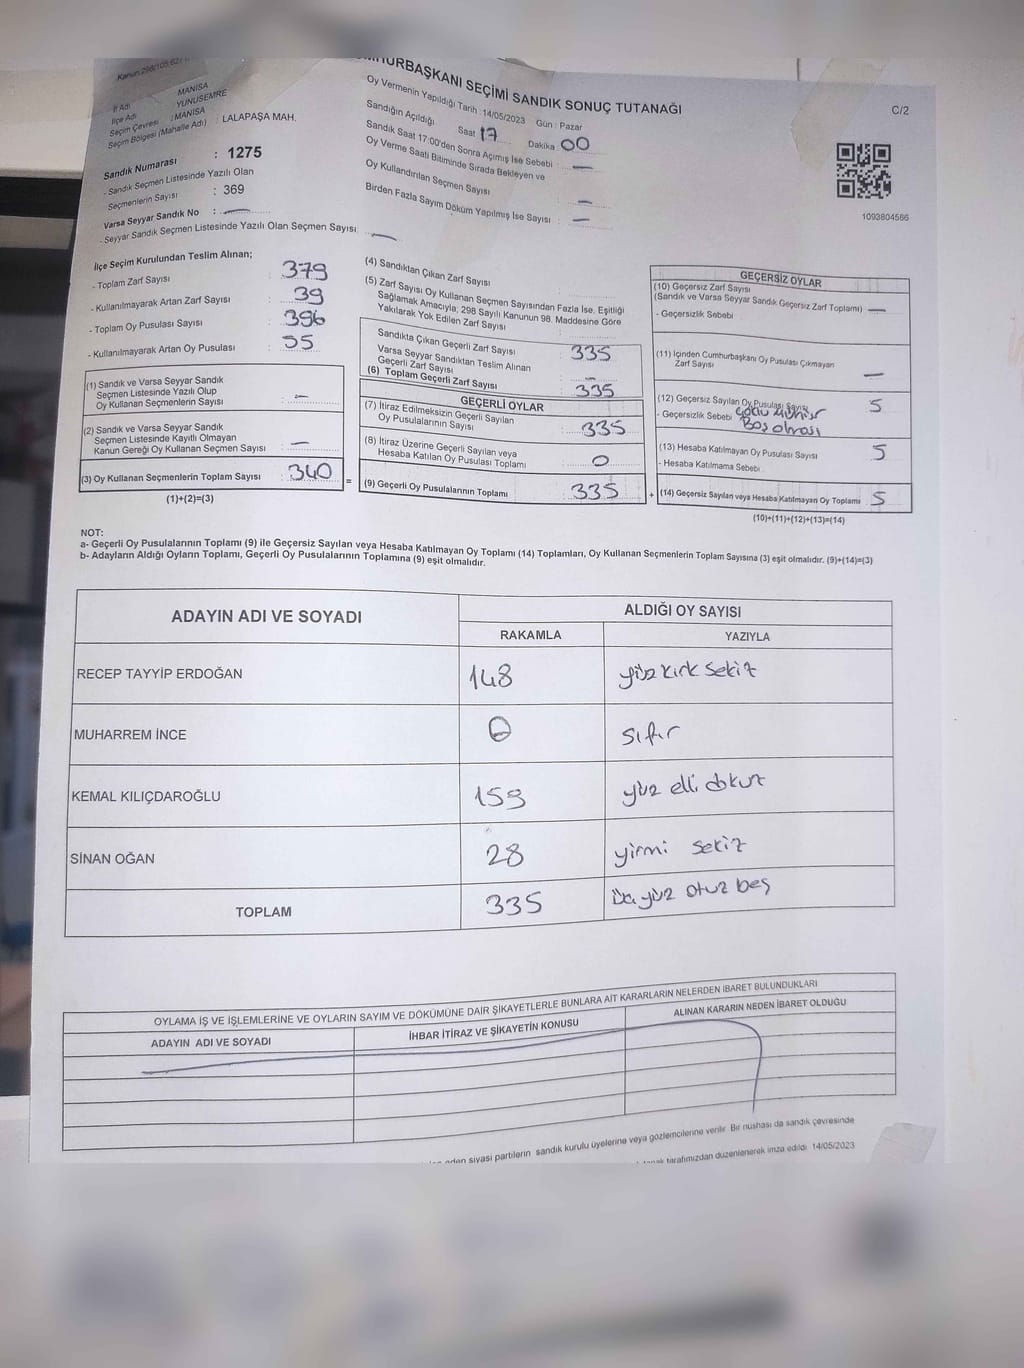 Kanun 298/105
CUMHURBAŞKANI SEÇİMİ SANDIK SONUÇ TUTANAĞI
C/2
İl Adı MANİSA
İlçe Adı YUNUSEMRE
Seçim Çevresi : MANİSA
Seçim Bölgesi (Mahalle Adı) : LALAPAŞA MAH.
Sandık Numarası : 1275
- Sandık Seçmen Listesinde Yazılı Olan
Seçmenlerin Sayısı : 369
Varsa Seyyar Sandık No : —
- Seyyar Sandık Seçmen Listesinde Yazılı Olan Seçmen Sayısı —
Oy Vermenin Yapıldığı Tarih : 14/05/2023 Gün : Pazar
Sandığın Açıldığı Saat 17 Dakika 00
Sandık Saat 17:00'den Sonra Açımış İse Sebebi : —
Oy Verme Saati Bitiminde Sırada Bekleyen ve
Oy Kullandırılan Seçmen Sayısı —
Birden Fazla Sayım Döküm Yapılmış İse Sayısı —
1093804586
İlçe Seçim Kurulundan Teslim Alınan;
- Toplam Zarf Sayısı : 379
- Kullanılmayarak Artan Zarf Sayısı : 39
- Toplam Oy Pusulası Sayısı : 396
- Kullanılmayarak Artan Oy Pusulası : 55
(1) Sandık ve Varsa Seyyar Sandık
Seçmen Listesinde Yazılı Olup
Oy Kullanan Seçmenlerin Sayısı : —
(2) Sandık ve Varsa Seyyar Sandık
Seçmen Listesinde Kayıtlı Olmayan
Kanun Gereği Oy Kullanan Seçmen Sayısı : —
(3) Oy Kullanan Seçmenlerin Toplam Sayısı : 340
(1)+(2)=(3)
=
(4) Sandıktan Çıkan Zarf Sayısı
(5) Zarf Sayısı Oy Kullanan Seçmen Sayısından Fazla İse, Eşitliği
Sağlamak Amacıyla; 298 Sayılı Kanunun 98. Maddesine Göre
Yakılarak Yok Edilen Zarf Sayısı
Sandıkta Çıkan Geçerli Zarf Sayısı : 335
Varsa Seyyar Sandıktan Teslim Alınan
Geçerli Zarf Sayısı : —
(6) Toplam Geçerli Zarf Sayısı : 335
GEÇERLİ OYLAR
(7) İtiraz Edilmeksizin Geçerli Sayılan
Oy Pusulalarının Sayısı : 335
(8) İtiraz Üzerine Geçerli Sayılan veya
Hesaba Katılan Oy Pusulaları Toplamı : 0
(9) Geçerli Oy Pusulalarının Toplamı 335
+
GEÇERSİZ OYLAR
(10) Geçersiz Zarf Sayısı
(Sandık ve Varsa Seyyar Sandık Geçersiz Zarf Toplamı) —
- Geçersizlik Sebebi
(11) İçinden Cumhurbaşkanı Oy Pusulası Çıkmayan
Zarf Sayısı —
(12) Geçersiz Sayılan Oy Pusulası Sayısı 5
- Geçersizlik Sebebi
Boş olması
(13) Hesaba Katılmayan Oy Pusulası Sayısı 5
- Hesaba Katılmama Sebebi
(14) Geçersiz Sayılan veya Hesaba Katılmayan Oy Toplamı 5
(10)+(11)+(12)+(13)=(14)
NOT:
a- Geçerli Oy Pusulalarının Toplamı (9) ile Geçersiz Sayılan veya Hesaba Katılmayan Oy Toplamı (14) Toplamları, Oy Kullanan Seçmenlerin Toplam Sayısına (3) eşit olmalıdır. (9)+(14)=(3)
b- Adayların Aldığı Oyların Toplamı, Geçerli Oy Pusulalarının Toplamına (9) eşit olmalıdır.
ADAYIN ADI VE SOYADI
ALDIĞI OY SAYISI
RAKAMLA YAZIYLA
RECEP TAYYİP ERDOĞAN 148 yüz kırk sekiz
MUHARREM İNCE 0 sıfır
KEMAL KILIÇDAROĞLU 159 yüz elli dokuz
SİNAN OĞAN 28 yirmi sekiz
TOPLAM 335 üç yüz otuz beş
OYLAMA İŞ VE İŞLEMLERİNE VE OYLARIN SAYIM VE DÖKÜMÜNE DAİR ŞİKAYETLERLE BUNLARA AİT KARARLARIN NELERDEN İBARET BULUNDUKLARI
ADAYIN ADI VE SOYADI İHBAR İTİRAZ VE ŞİKAYETİN KONUSU ALINAN KARARIN NEDEN İBARET OLDUĞU
eden siyasi partilerin sandık kurulu üyelerine veya gözlemcilerine verilir. Bir nüshası da sandık çevresinde
tarafımızdan düzenlenerek imza edildi 14/05/2023